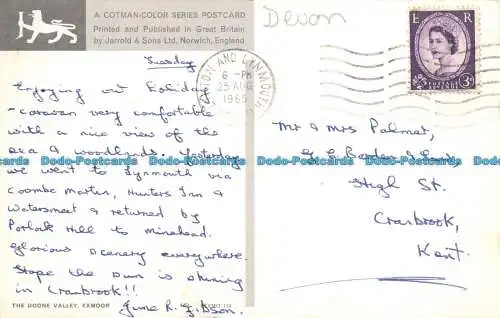 A COTMAN-COLOR SERIES POSTCARD
Printed and Published in Great Britain
by Jarrold & Sons Ltd, Norwich, England
Devon
E R
POSTAGE REVENUE
3D
LYNTON AND LYNMOUTH
6 - PM
25 AUG
1965
DEVON
Tuesday
Enjoying our holiday
- caravan very comfortable
with a nice view of the
sea & woodlands. Yesterday
we went to Lynmouth via
Coombe Martin, Hunters Inn &
Watersmeet & returned by
Porlock Hill to Minehead.
Glorious scenery everywhere.
Hope the sun is shining
in Cranbrook!!
June R. Gibson
Mr & Mrs Palmer,
High St.
Cranbrook,
Kent.
THE DOONE VALLEY, EXMOOR
Dodo-Postcards Dodo-Postcards Dodo-Postcards Dodo-Postcards